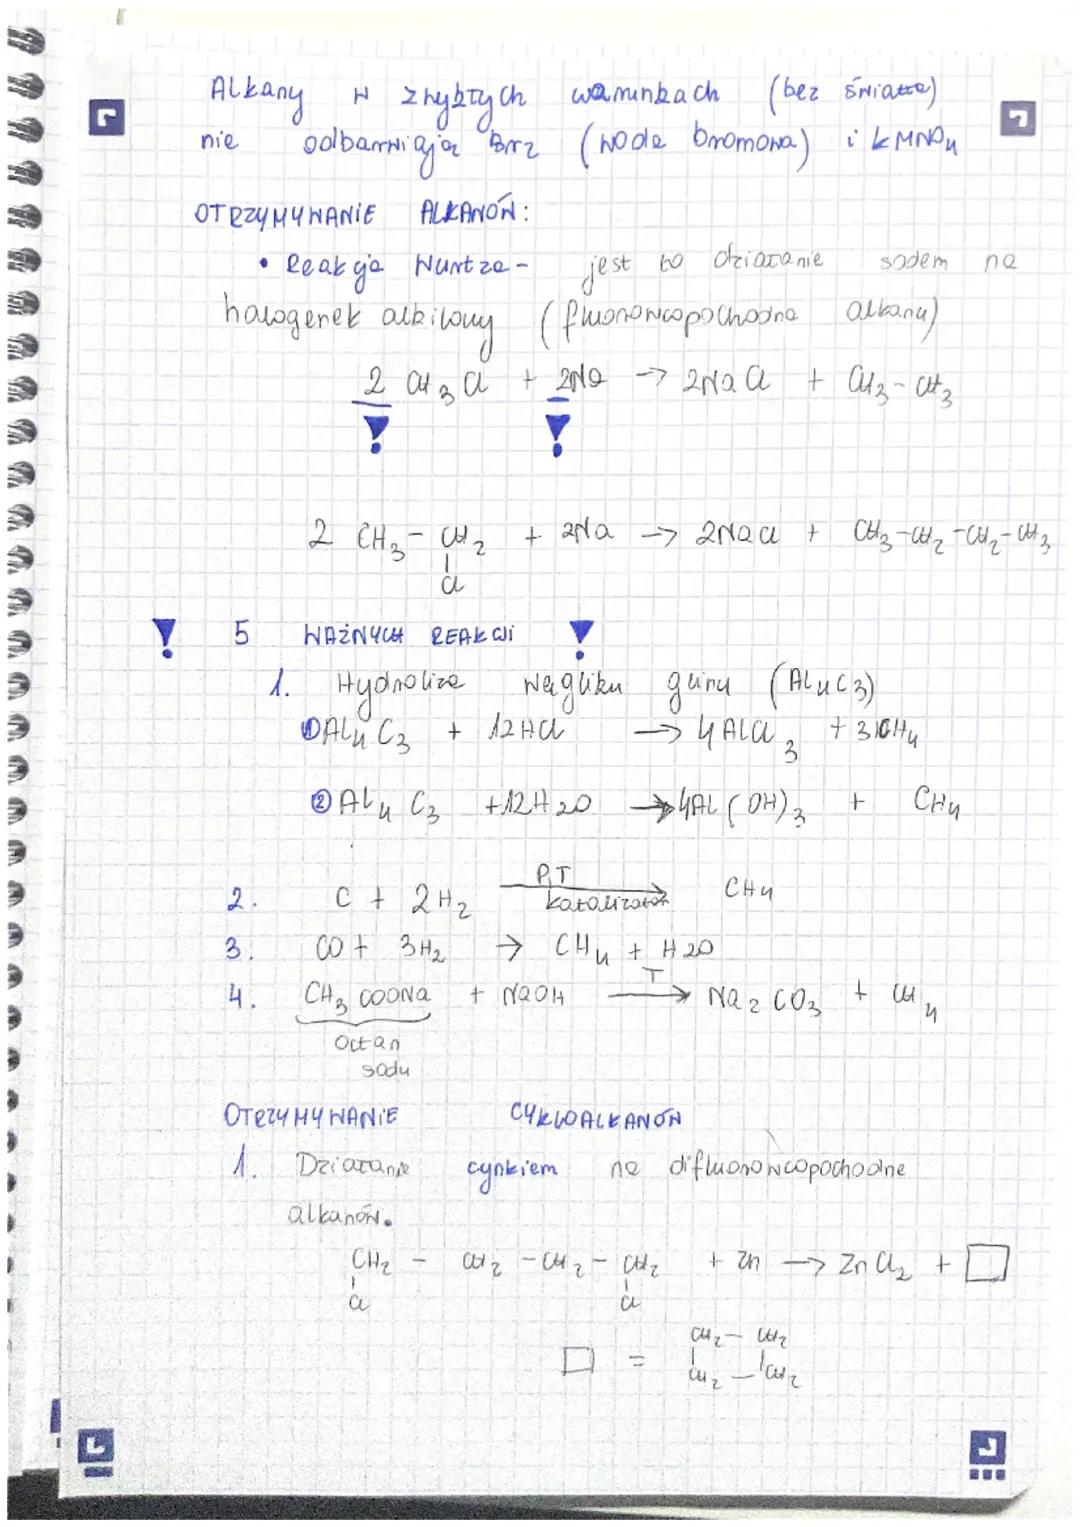 Alkany w zwykłych warunkach (bez światła)
nie odbarwiają Br2 (woda bromowa) i KMNO4
OTRZYMYWANIE ALKANÓW:
• Reakcja Wurtza - jest to działanie sodem na
halogenek alkilowy (fluorowcopochodna alkanu)
2 CH3Cl + 2Na → 2NaCl + CH3-CH3
2 CH3 - CH2 + 2Na → 2NaCl + CH3-CH2-CH2-CH3
Cl
! 5 WAŻNYCH REAKCJI !
1. Hydroliza węgliku glinu (Al4C3)
① Al4C3 + 12HCl → 4AlCl3 + 3CH4
② Al4C3 + 12H2O → 4Al(OH)3 + CH4
2. C + 2H2 P,T → CH4
katalizator
3. CO + 3H2 → CH4 + H2O
4. CH3COONa + NaOH T → Na2CO3 + CH4
octan
sodu
OTRZYMYWANIE CYKLOALKANÓW
1. Działanie cynkiem na difluorowcopochodne
alkanów.
CH2 - CH2 - CH2 - CH2 + Zn → ZnCl2 + □
Cl Cl
CH2 - CH2
□ =
CH2 - CH2